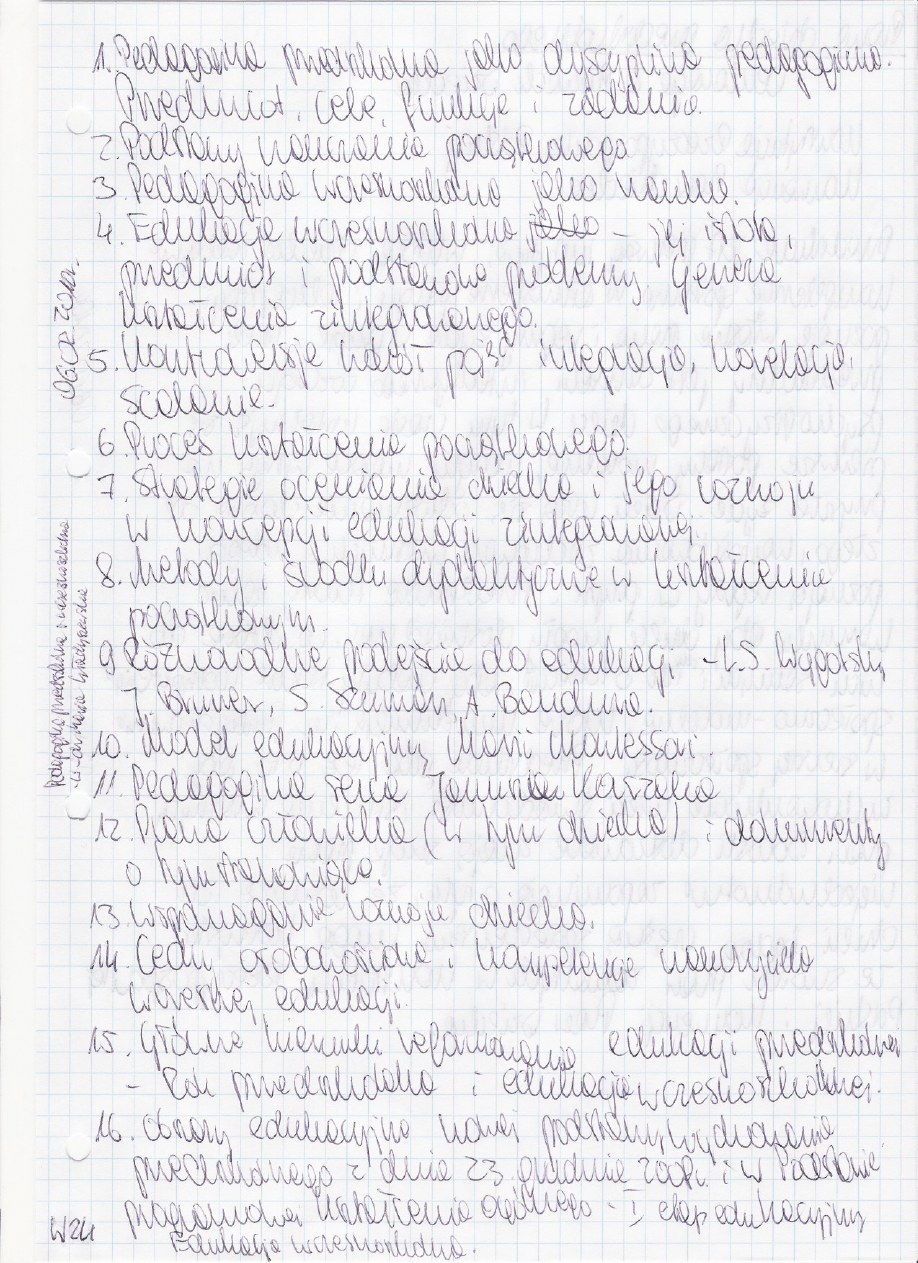 1. Pedagogika przedszkolna jako dyscyplina pedagogiczna.
Przedmiot, cele, funkcje i zadania.
2. Podstawy nauczania początkowego
3. Pedagogika wczesnoszkolna jako nauka.
4. Edukacja wczesnoszkolna jako – jej istota,
przedmiot i podstawowe problemy. Geneza
kształcenia zintegrowanego.
5. Kontrowersje wokół pojęć integracja, korelacja,
scalanie.
6. Proces kształcenia początkowego.
7. Strategie oceniania dziecka i jego rozwoju
w koncepcji edukacji zintegrowanej.
8. Metody i środki dydaktyczne w kształceniu
początkowym.
9. Różnorodne podejście do edukacji – L.S. Wygotsky
J. Bruner, S. Szuman, A. Bandura.
10. Model edukacyjny Marii Montessori.
11. Pedagogika serca Janusza Korczaka
12. Prawa człowieka (w tym dziecka) i dokumenty
o tym stanowiące.
13. Wspomaganie rozwoju dziecka.
14. Cechy osobowościowe i kompetencje nauczyciela
wczesnej edukacji.
15. Główne kierunki reformowania edukacji przedszkolnej
– rok przedszkolaka i edukacja wczesnoszkolnej.
16. Obszary edukacyjne nowej podstawy wychowania
przedszkolnego z dnia 23 grudnia 2008r. i w Podstawie
programowej kształcenia ogólnego – I etap edukacyjny
Edukacja wczesnoszkolna.
W24
Pedagogika przedszkolna i wczesnoszkolna